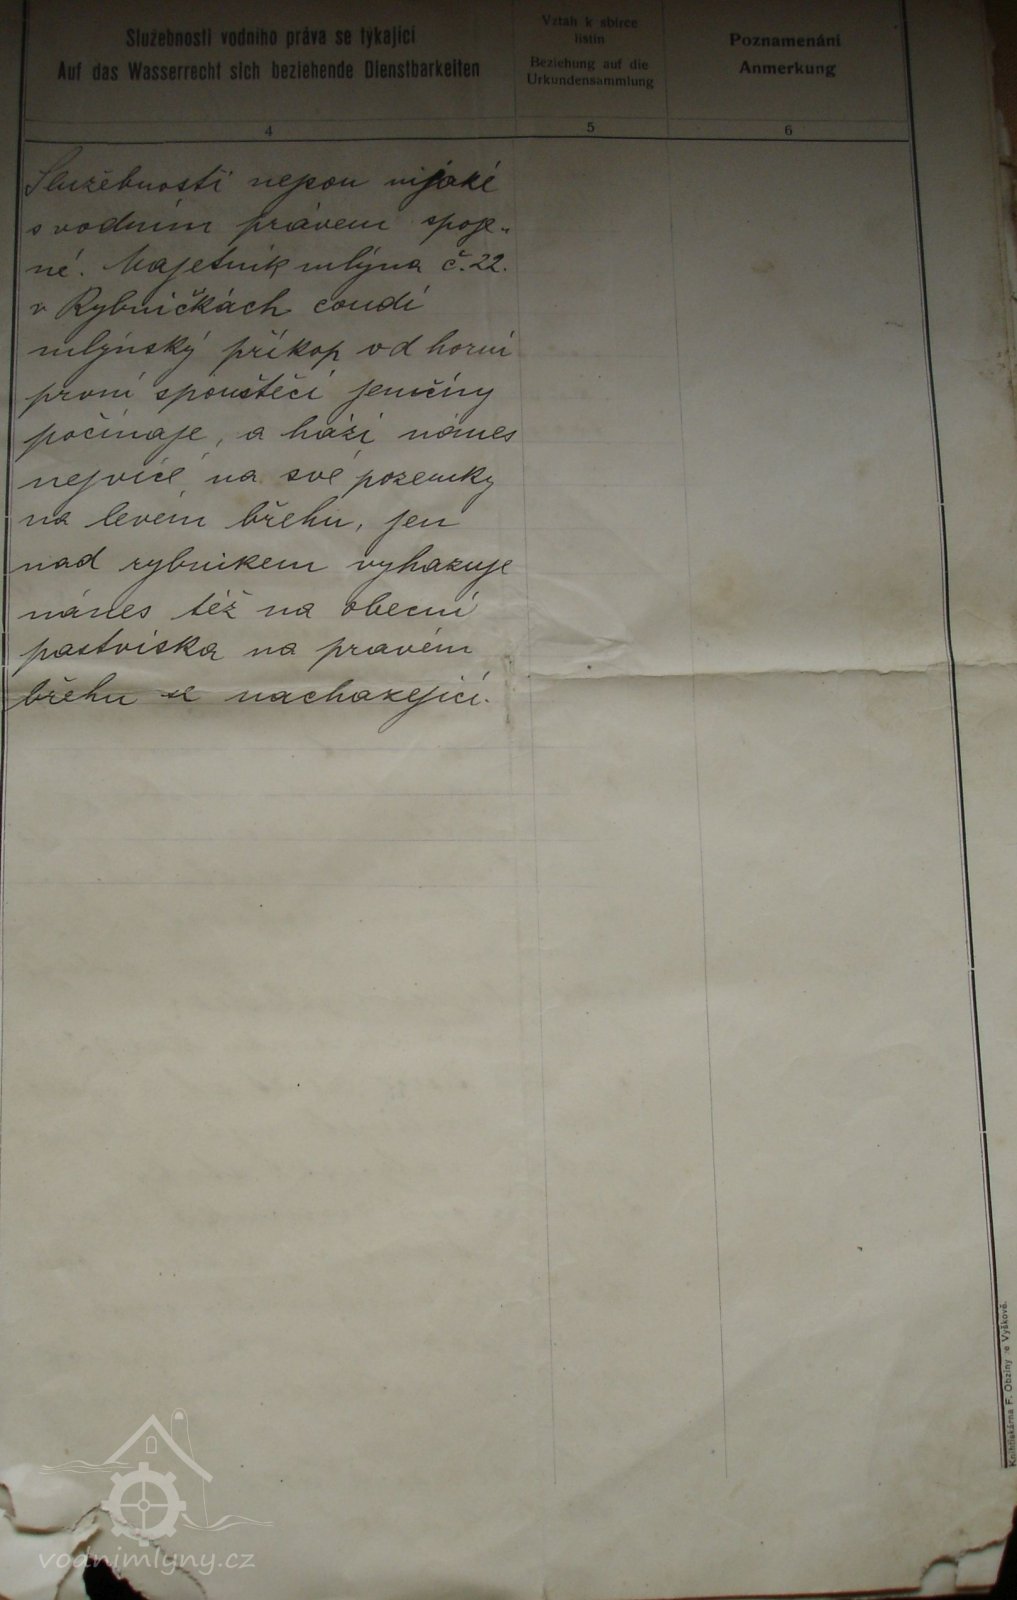 Služebnosti vodního práva se týkající
Auf das Wasserrecht sich beziehende Dienstbarkeiten
Vztah k sbírce
listin
Beziehung auf die
Urkundensammlung
Poznamenání
Anmerkung
4
5
6
Služebnosti nejsou nijaké
s vodním právem spoje-
né. Majetník mlýna č. 22.
v Rybníčkách coudí
mlýnský příkop od horní
první spouštěcí jenčíny
počínaje, a hází nánes
nejvíce na své pozemky
na levém břehu, jen
nad rybníkem vyhazuje
nánes též na obecní
pastviska na pravém
břehu se nacházející.
Knihtiskárna F. Obziny ve Vyškově.
vodnimlyny.cz